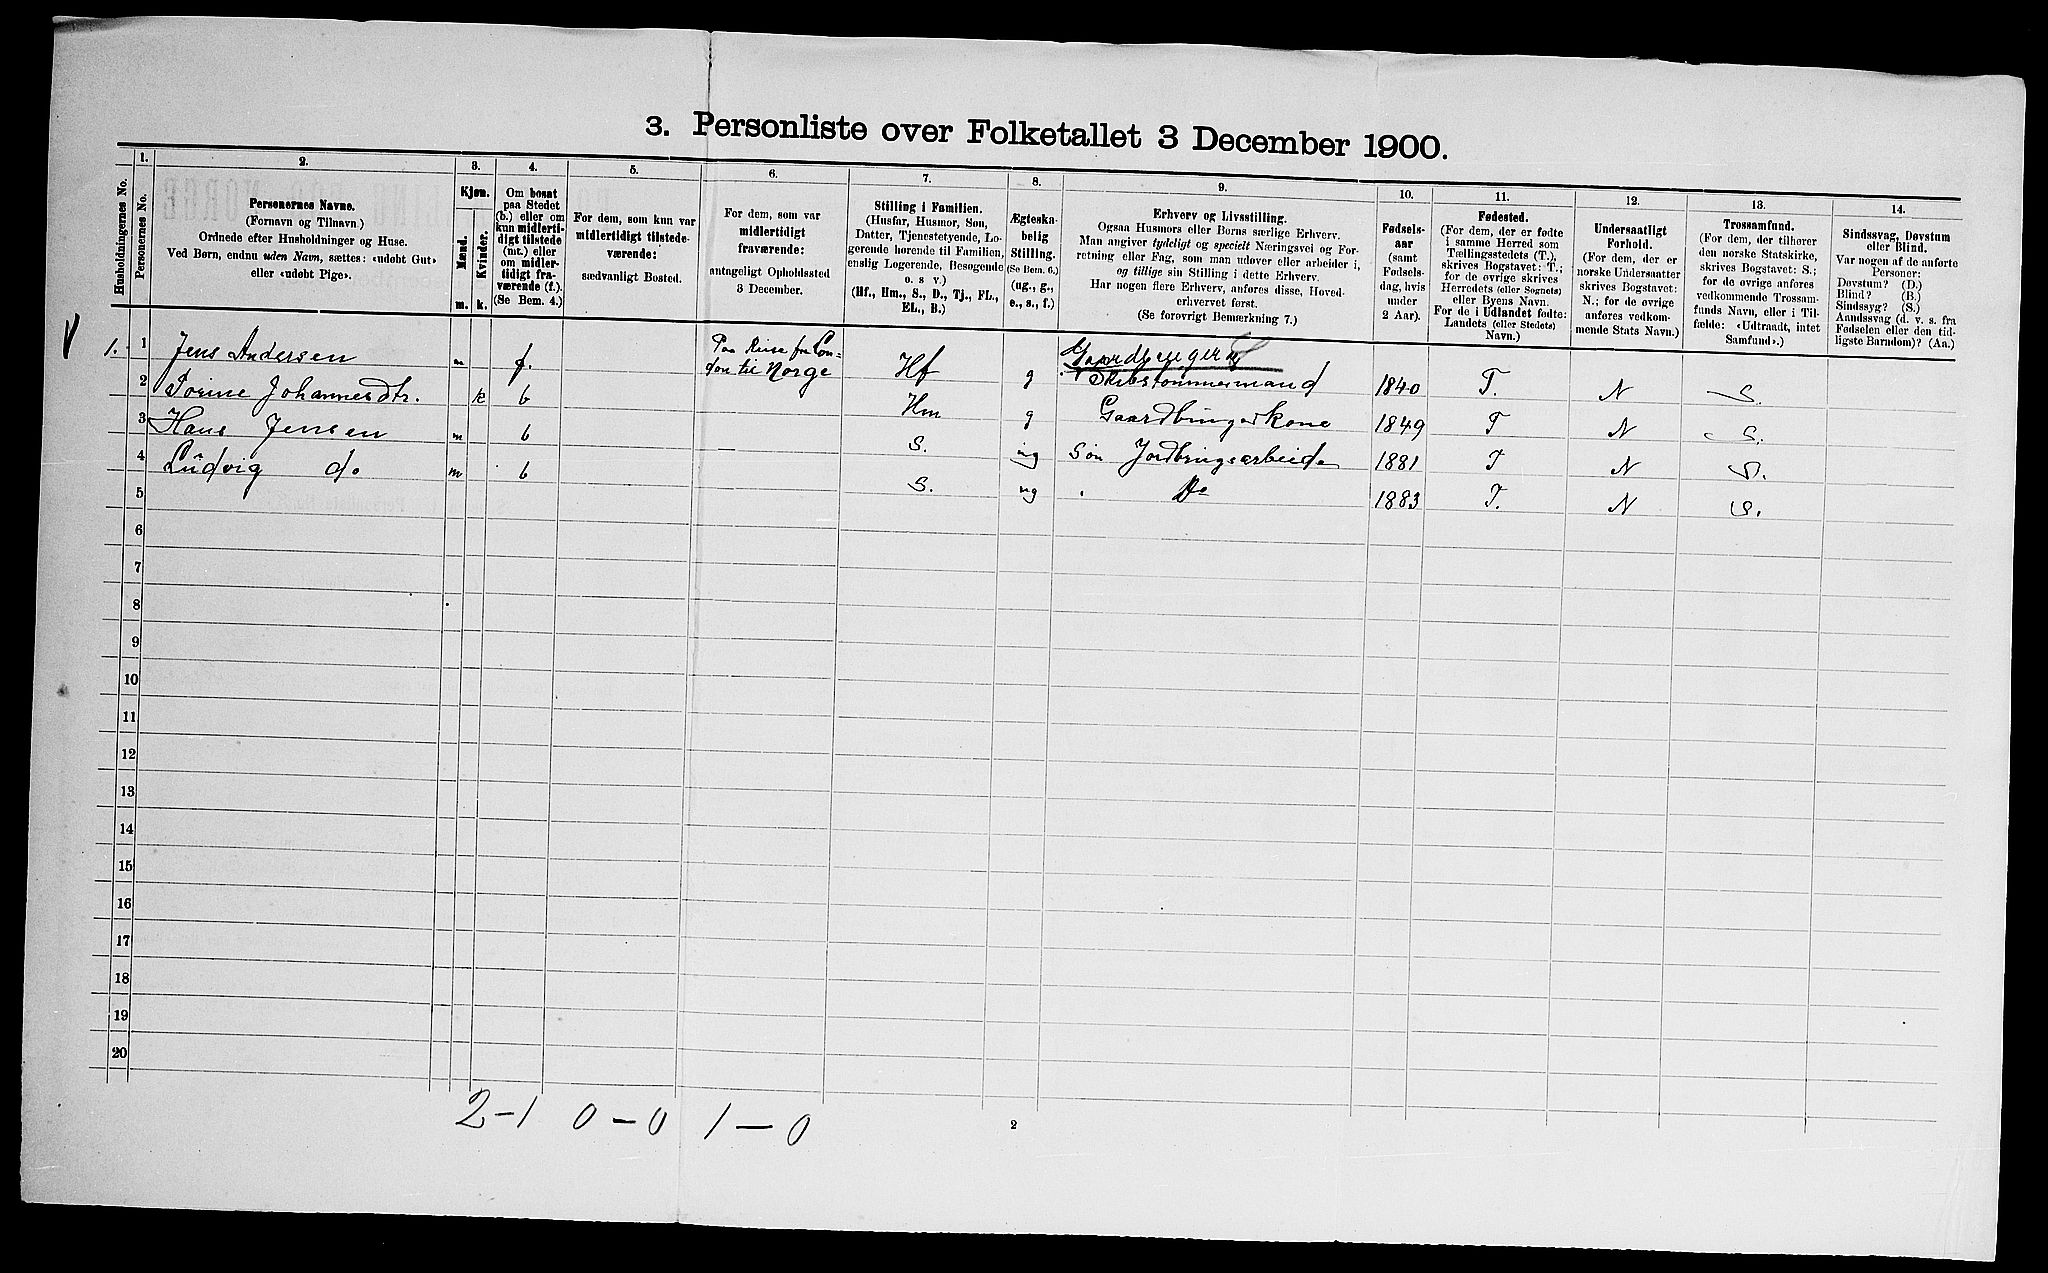 3. Personliste over Folketallet 3 December 1900.
Husholdningernes No.
1.
Personernes No.
2.
Personernes Navne.
(Fornavn og Tilnavn.)
Ordnede efter Husholdninger og Huse.
Ved Børn, endnu uden Navn, sættes: «udøbt Gut»
eller «udøbt Pige».
3.
Kjøn.
Mænd.
Kvinder.
m.
k.
4.
Om bosat
paa Stedet
(b.) eller om
kun midlerti-
digt tilstede
(mt.) eller
om midler-
tidigt fra-
værende (f.).
(Se Bem. 4.)
5.
For dem, som kun var
midlertidigt tilstede-
værende:
sædvanligt Bosted.
6.
For dem, som var
midlertidigt
fraværende:
antageligt Opholdssted
3 December.
7.
Stilling i Familien.
(Husfar, Husmor, Søn,
Datter, Tjenestetyende, Lo-
gerende hørende til Familien,
enslig Logerende, Besøgende
o. s v.)
(Hf., Hm., S., D., Tj., FL.,
EL., B.)
8.
Ægteska-
belig
Stilling.
(Se Bem. 6.)
(ug., g.,
e., s., f.)
9.
Erhverv og Livsstilling.
Ogsaa Husmors eller Børns særlige Erhverv.
Man angiver tydeligt og specielt Næringsvei og For-
retning eller Fag, som man udøver eller arbeider i,
og tillige sin Stilling i dette Erhverv.
Har nogen flere Erhverv, anføres disse, Hoved-
erhvervet først.
(Se forøvrigt Bemærkning 7.)
10.
Fødsels-
aar
(samt
Fødsels-
dag, hvis
under
2 Aar).
11.
Fødested.
(For dem, der er fødte
i samme Herred som
Tællingsstedets (T.),
skrives Bogstavet: T.;
for de øvrige skrives
Herredets (eller Sognets)
eller Byens Navn.
For de i Udlandet fødte:
Landets (eller Stedets)
Navn.)
12.
Undersaatligt
Forhold.
(For dem, der er
norske Undersaatter
skrives Bogstavet:
N.; for de øvrige
anføres vedkom-
mende Stats Navn.)
13.
Trossamfund.
(For dem, der tilhører
den norske Statskirke,
skrives Bogstavet: S.;
for de øvrige anføres
vedkommende Trossam-
funds Navn, eller i Til-
fælde: «Udtraadt, intet
Samfund».)
14.
Sindssvag, Døvstum
eller Blind.
Var nogen af de anførte
Personer:
Døvstum? (D.)
Blind? (B.)
Sindssyg? (S.)
Aandssvag (d. v. s. fra
Fødselen eller den tid-
ligste Barndom)? (Aa.)
1. 1 Jens Andersen m f. Paa Reise fra Lon-
don til Norge Hf g Gaardbruger
Skibstømmermand 1840 T. N S.
2 Torine Johannesdtr. k b Hm g Gaardbrugerkone 1849 T N S.
3 Hans Jensen m b S. ug Søn Jordbrugsarbeide 1881 T N S.
4 Ludvig do m b S. ug Do 1883 T. N S.
5
6
7
8
9
10
11
12
13
14
15
16
17
18
19
20
2-1 0-0 1-0
2